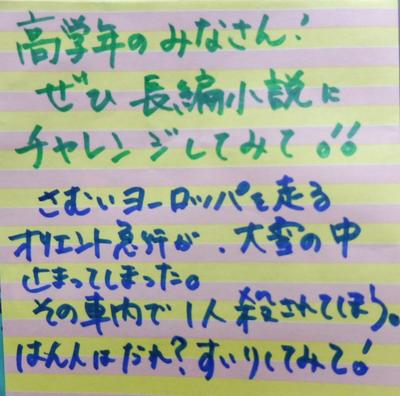 高学年のみなさん!
ぜひ 長編小説に
チャレンジしてみて!!
さむいヨーロッパを走る
オリエント急行が、大雪の中
止まってしまった。
その車内で1人殺されてしまう。
はん人はだれ?すいりしてみて!